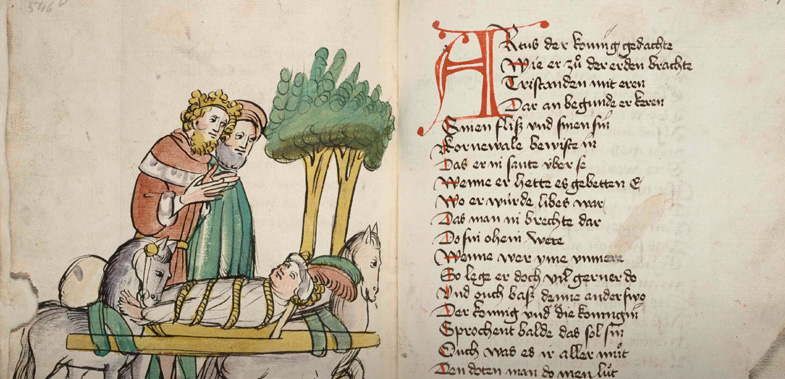 546
ARtus der konnig gedachte
Wie er zů der erden brachte
Tristanden mit eren
Dar an begunde er keren
Sinen fliß vnd sinen sin
Kornewale bewiste in
Das er in sante vber se
Wenne er hette es gebetten E
Wo er würde libes war
Das man in brechte dar
Do sin ohein were
Wenne wer yme vnmere
So lege er doch vil gerner do
Vnd ouch baß denne anderswo
Der konnig vnd die konnigin
Sprochent balde das sol sin
Ouch was es ir aller můt
Den doten man do men lůt